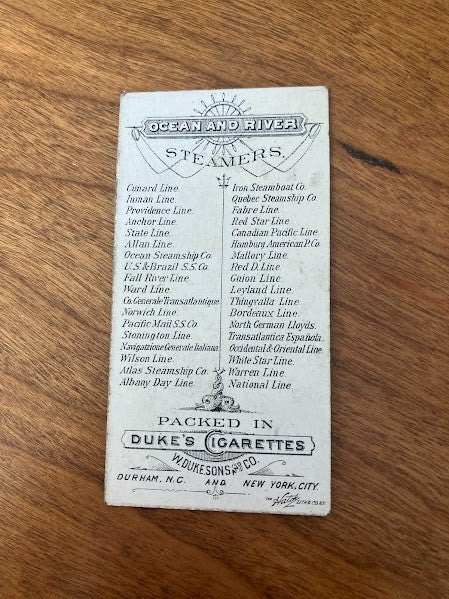 OCEAN AND RIVER
STEAMERS.
Cunard Line.
Inman Line.
Providence Line.
Anchor Line.
State Line.
Allan Line.
Ocean Steamship Co.
U.S. & Brazil S.S. Co.
Fall River Line.
Ward Line.
Co. Generale Transatlantique
Norwich Line.
Pacific Mail S.S. Co.
Stonington Line.
Navigatzione Generale Italiana
Wilson Line.
Atlas Steamship Co.
Albany Day Line.
Iron Steamboat Co.
Quebec Steamship Co.
Fabre Line.
Red Star Line.
Canadian Pacific Line.
Hamburg American P. Co.
Mallory Line.
Red D. Line.
Guion Line.
Leyland Line.
Thingvalla Line.
Bordeaux Line.
North German Lloyds.
Transatlantica Española.
Occidental & Oriental Line.
White Star Line.
Warren Line.
National Line.
PACKED IN
DUKE'S CIGARETTES
W. DUKE SONS AND CO.
DURHAM. N.C. AND NEW YORK. CITY.
THE Hatch LITH. CO. N.Y.